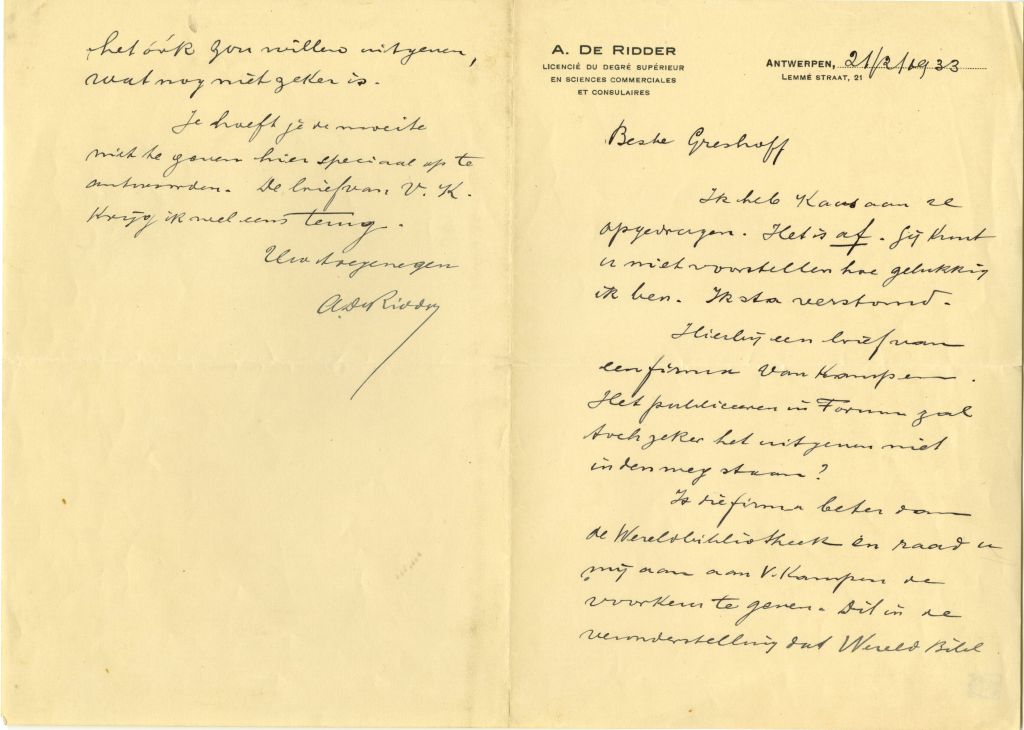 A. DE RIDDER
LICENCIÉ DU DEGRÉ SUPÉRIEUR
EN SCIENCES COMMERCIALES
ET CONSULAIRES
ANTWERPEN, 21/2/1933
LEMMÉ STRAAT, 21
Beste Greshoff
Ik heb Kaas aan
opgedragen. Het is af. Gij kunt
u niet voorstellen hoe gelukkig
ik ben. Ik sta verstomd.
Hierbij een brief van
een firma Van Kampen.
Het publiceeren in Forum zal
toch zeker het uitgeven niet
in den weg staan?
Is die firma beter dan
de Wereldbibliotheek en raad u
mij aan aan V. Kampen de
voorkeur te geven. Dit in de
veronderstelling dat Wereld Bibl
het óók zou willen uitgeven,
wat nog niet zeker is.
Je hoeft je de moeite
niet te geven hier speciaal op te
antwoorden. De brief van V. K.
krijg ik wel eens terug.
Uw toegenegen
A. De Ridder